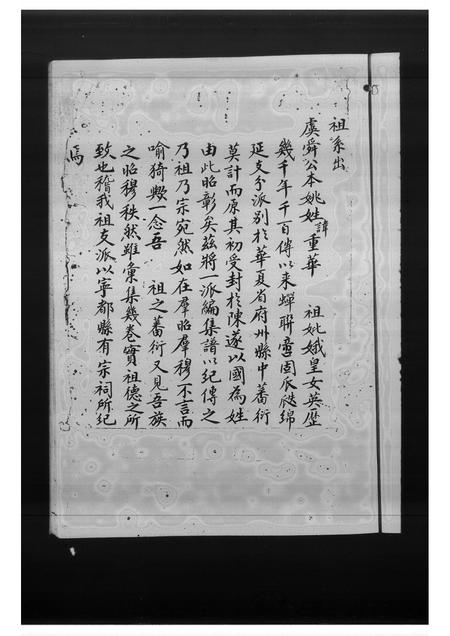 祖系出
虞舜公本姚姓諱重華　祖妣娥皇女英歷
幾千年千百傳以來蟬聯鞏固瓜瓞綿
延支分派別於華夏省府州縣中蕃衍
莫計而原其初受封於陳遂以國為姓
由此昭彰矣茲將一派編集譜以紀傳之
乃祖乃宗宛然如在羣昭羣穆不言而
喻猗歟一念吾　祖之蕃衍又見吾族
之昭穆秩然雖彙集幾卷實祖德之所
致也稽我祖支派以寧都縣有宗祠所紀
焉